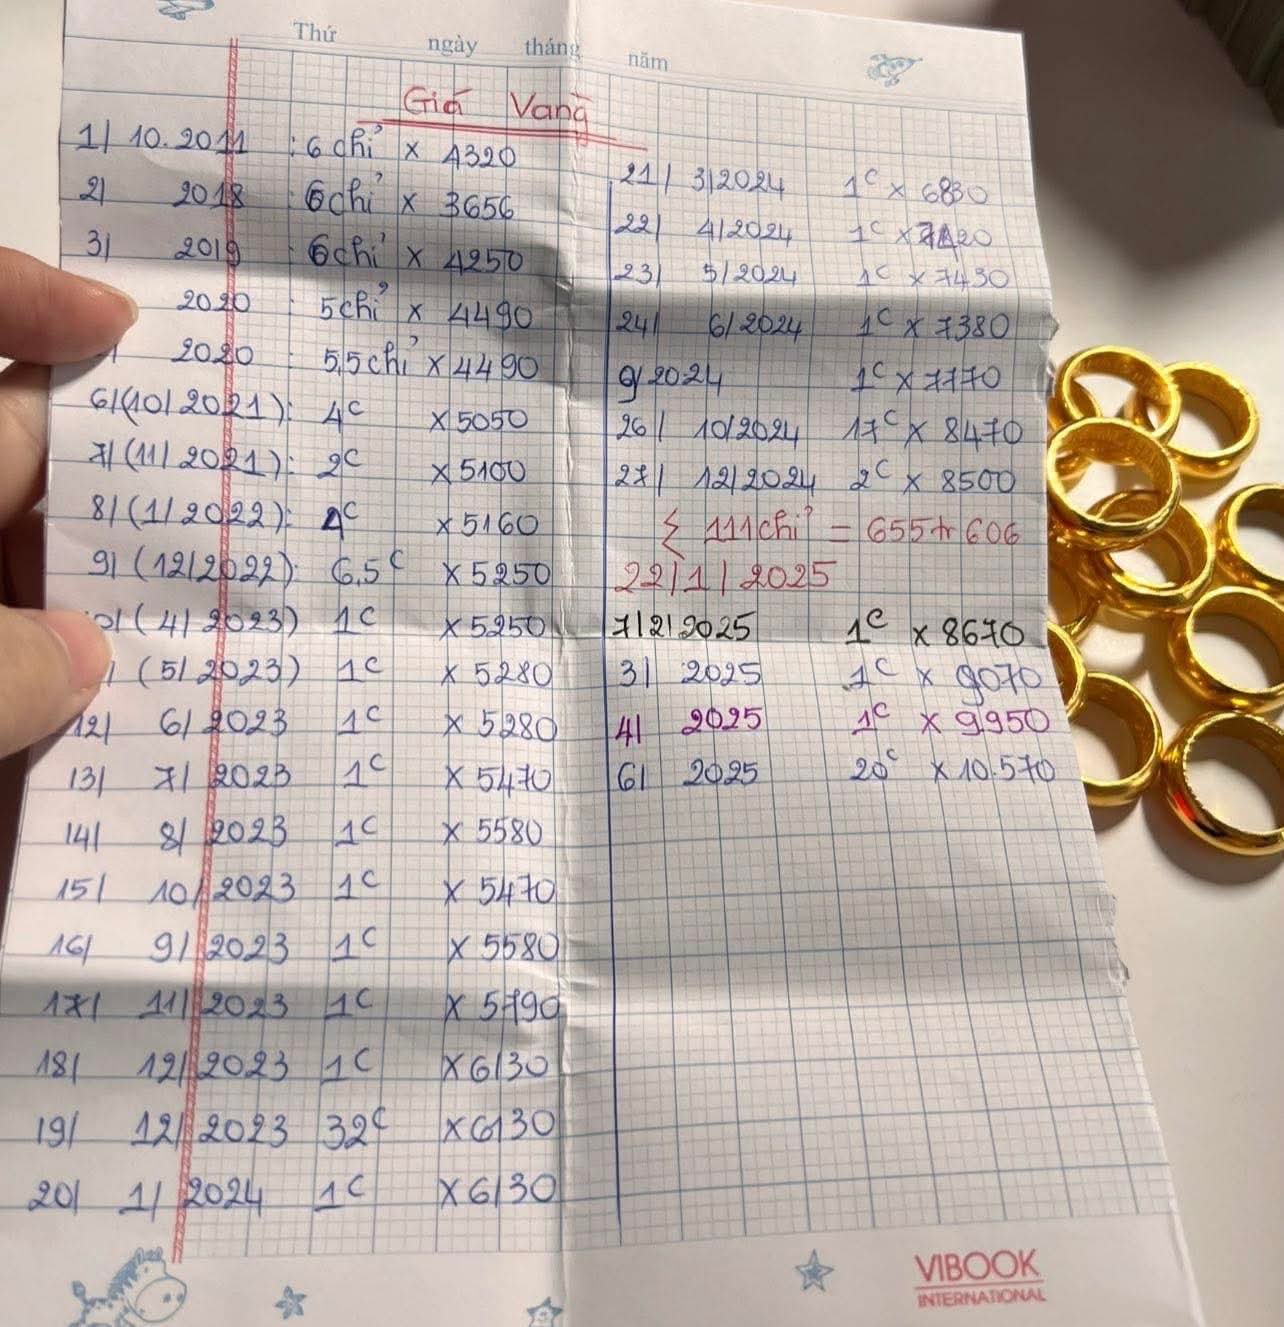 Thứ ngày tháng năm
Giá Vang
1/ 10.2011 : 6 chỉ x 4320
2/ 2018 : 6chỉ x 3656
3/ 2019 : 6chỉ x 4250
2020 : 5chỉ x 4490
2020 : 5,5chỉ x 4490
6/(10/2021): 4c x 5050
7/(11/2021): 2c x 5100
8/(1/2022): 4c x 5160
9/(12/2022): 6,5c x 5250
0/(4/2023) 1c x 5250
(5/2023) 1c x 5280
12/ 6/2023 1c x 5280
13/ 7/2023 1c x 5470
14/ 8/2023 1c x 5580
15/ 10/2023 1c x 5470
16/ 9/2023 1c x 5580
17/ 11/2023 1c x 5790
18/ 12/2023 1c x 6130
19/ 12/2023 32c x 6130
20/ 1/2024 1c x 6130
21/ 3/2024 1c x 6830
22/ 4/2024 1c x 7420
23/ 5/2024 1c x 7430
24/ 6/2024 1c x 7380
9/2024 1c x 7770
26/ 10/2024 17c x 8470
27/ 12/2024 2c x 8500
Σ 111chỉ = 655tr606
22/1/2025
7/2/2025 1c x 8670
3/ 2025 1c x 9070
4/ 2025 1c x 9950
6/ 2025 20c x 10.570
VIBOOK
INTERNATIONAL